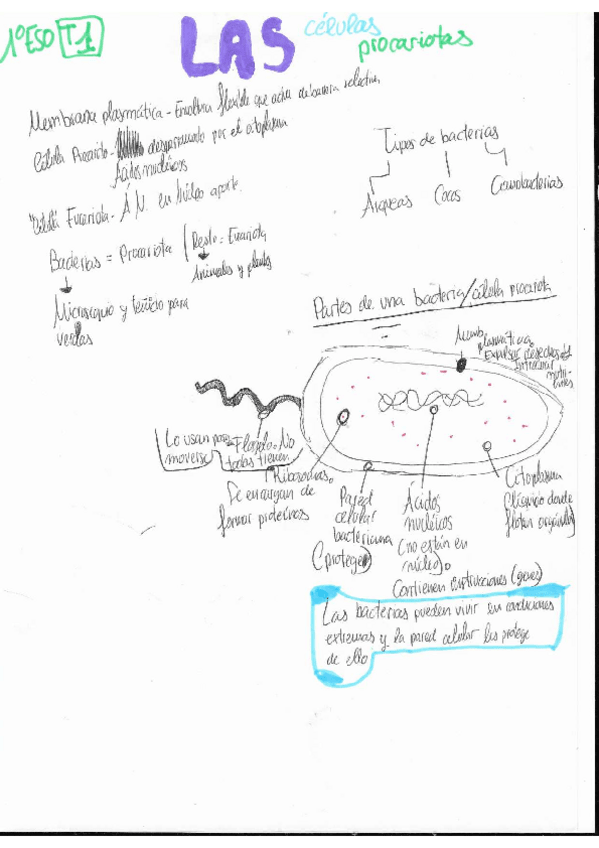 1ºESO T1
LAS células
procariotas
Membrana plasmática - Envoltura flexible que actúa de barrera selectiva
Célula Procariota - desparramado por el citoplasma
Ácidos nucléicos
Célula Eucariota - Á.N. en núcleo aparte.
Bacterias = Procariota
Resto = Eucariota
Animales y plantas
Microscopio y para
verlas
Tipos de bacterias
Arqueas
Cocos
Cianobacterias
Partes de una bacteria/célula procariota
Memb.
plasmática
Expulsar desechos
Introducir
Lo usan para
moverse
Flagelo. No
todas tienen
Ribosomas.
Se encargan de
formar proteínas
Pared
celular
bacteriana
(protege)
Ácidos
nucléicos
(no están en
núcleo).
Contienen instrucciones (genes)
Citoplasma
donde
flotan orgánulos
Las bacterias pueden vivir en condiciones
extremas y la pared celular les protege
de ello